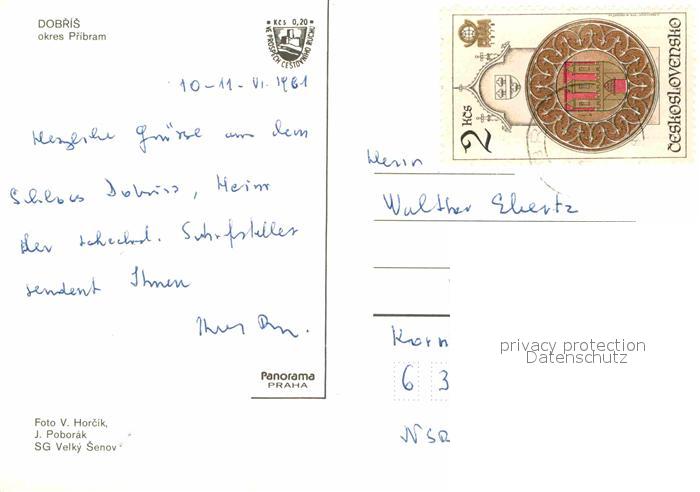 DOBŘÍŠ
okres Příbram
Kčs 0,20
VE PROSPĚCH CESTOVNÍHO RUCHU
10-11-VI. 1981
Herzliche Grüsse aus dem
Schloss Dobris, Heim
der tschechosl. Schriftsteller
sendent Ihnen
Ihr
Panorama
PRAHA
Foto V. Horčík,
J. Poborák
SG Velký Šenov
2 Kčs
ČESKOSLOVENSKO
Herrn
Walther Ebertz
privacy protection
Datenschutz
6 3